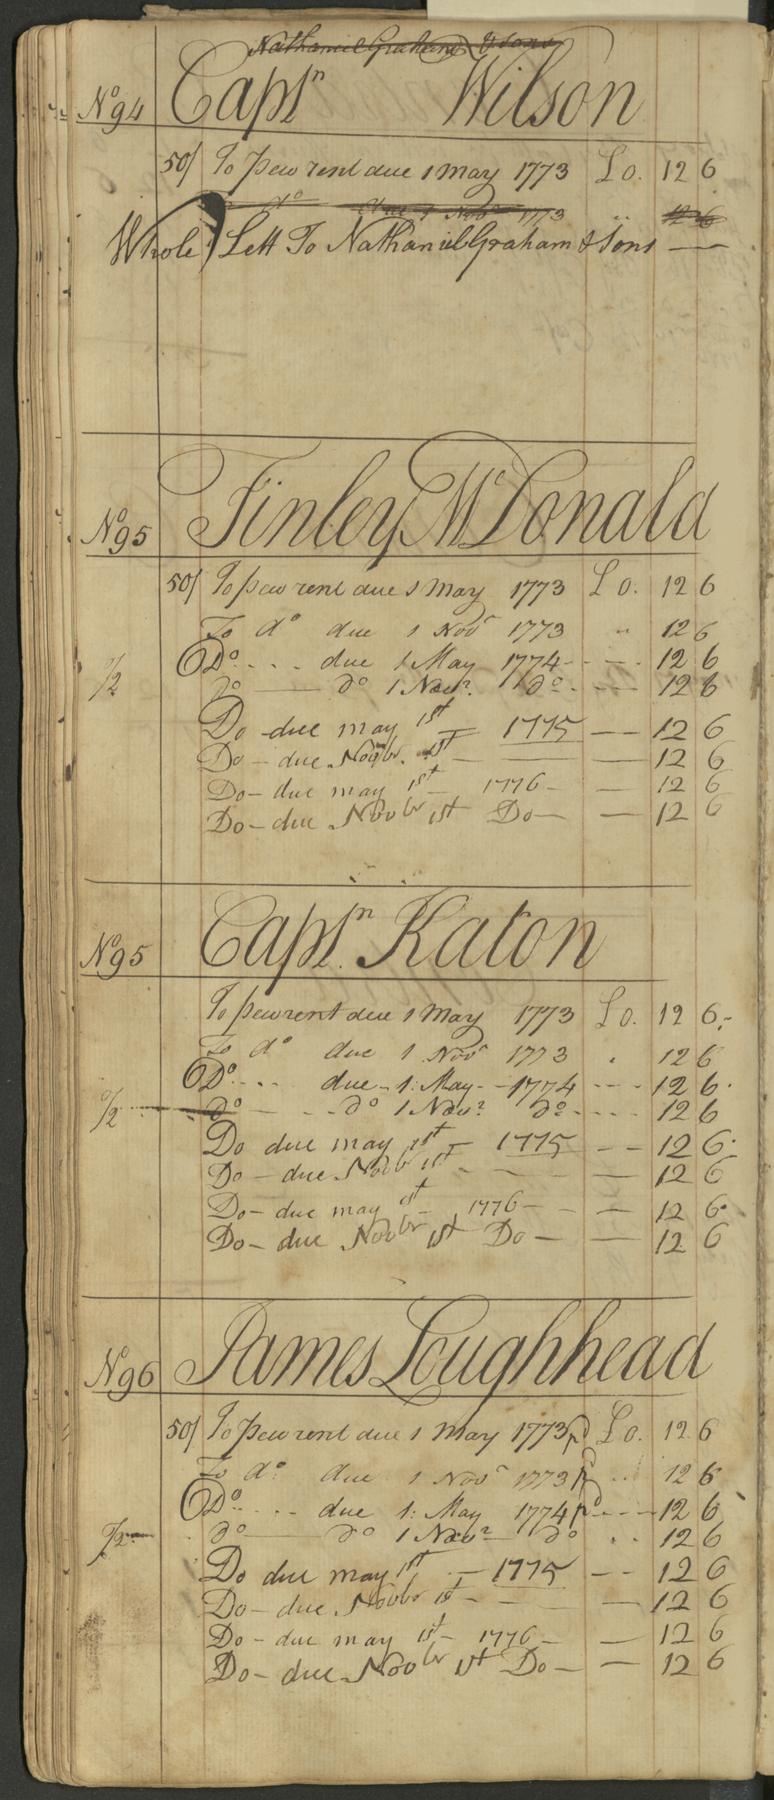 Nathaniel Graham & Sons
No 94 Captn Wilson
50/ To pew rent due 1 May 1773 £ 0. 12 6
do due 1 Novr 1773 " 12 6
Whole } Lett To Nathaniel Graham & Sons —
No 95 Finley McDonald
50/ To pew rent due 1 May 1773 £ 0. 12 6
To do due 1 Novr 1773 " 12 6
Do. . . . due 1 May 1774 - - - - 12 6
1/2 Do — do 1 Novr. do. - - - 12 6
Do - due may 1st — 1775 — — 12 6
Do — due Novbr. 1st — — — 12 6
Do — due may 1st — 1776 — — 12 6
Do — due Novbr 1st Do — — 12 6
No 95 Captn. Katon
To pew rent due 1 May 1773 £ 0. 12 6
To do due 1 Novr 1773 . 12 6
Do. . . due - 1: May - - 1774 - - - 12 6.
1/2 do — - - do 1 Novr. do - - - - 12 6
Do due may 1st — 1775 — — 12 6
Do — due Novbr 1st - — — 12 6
Do — due may 1st — 1776 — — 12 6
Do — due Novbr 1st Do — — 12 6
No 96 James Loughhead
50/ To pew rent due 1 May 1773 pd £ 0. 12 6
To do. due 1 Novr 1773 pd . . 12 6
Do. . . . due 1: May 1774 pd - - - 12 6
1/2 do — do 1 Novr. do . . 12 6
Do due may 1st — 1775 — — 12 6
Do — due Novbr 1st - — — 12 6
Do - due may 1st — 1776 — — 12 6
Do - due Novbr 1st Do — — 12 6